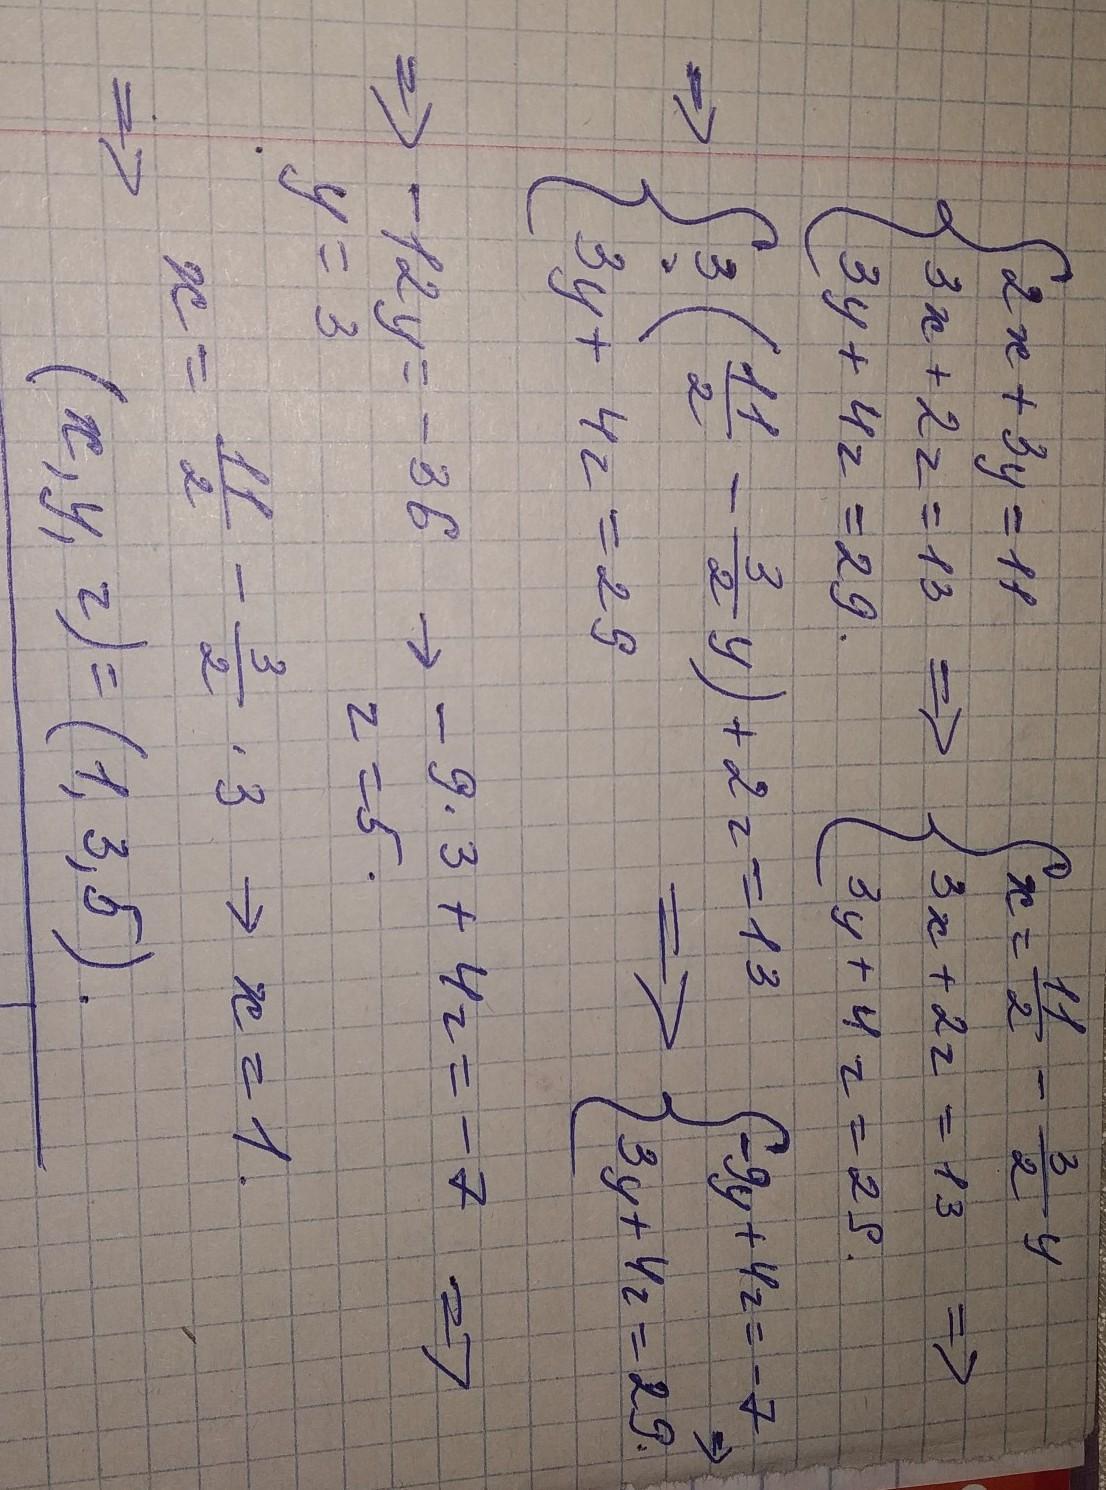 { 2x + 3y = 11
3x + 2z = 13 ⇒
3y + 4z = 29.
{ x = 11/2 - 3/2 y
3x + 2z = 13 ⇒
3y + 4z = 29.
⇒ { 3·(11/2 - 3/2 y) + 2z = 13
3y + 4z = 29 ⇒
{ -9y + 4z = -7 →
3y + 4z = 29.
⇒ -12y = -36 → -9·3 + 4z = -7 ⇒
y = 3 z = 5.
⇒ x = 11/2 - 3/2 · 3 → x = 1.
(x, y, z) = (1, 3, 5).